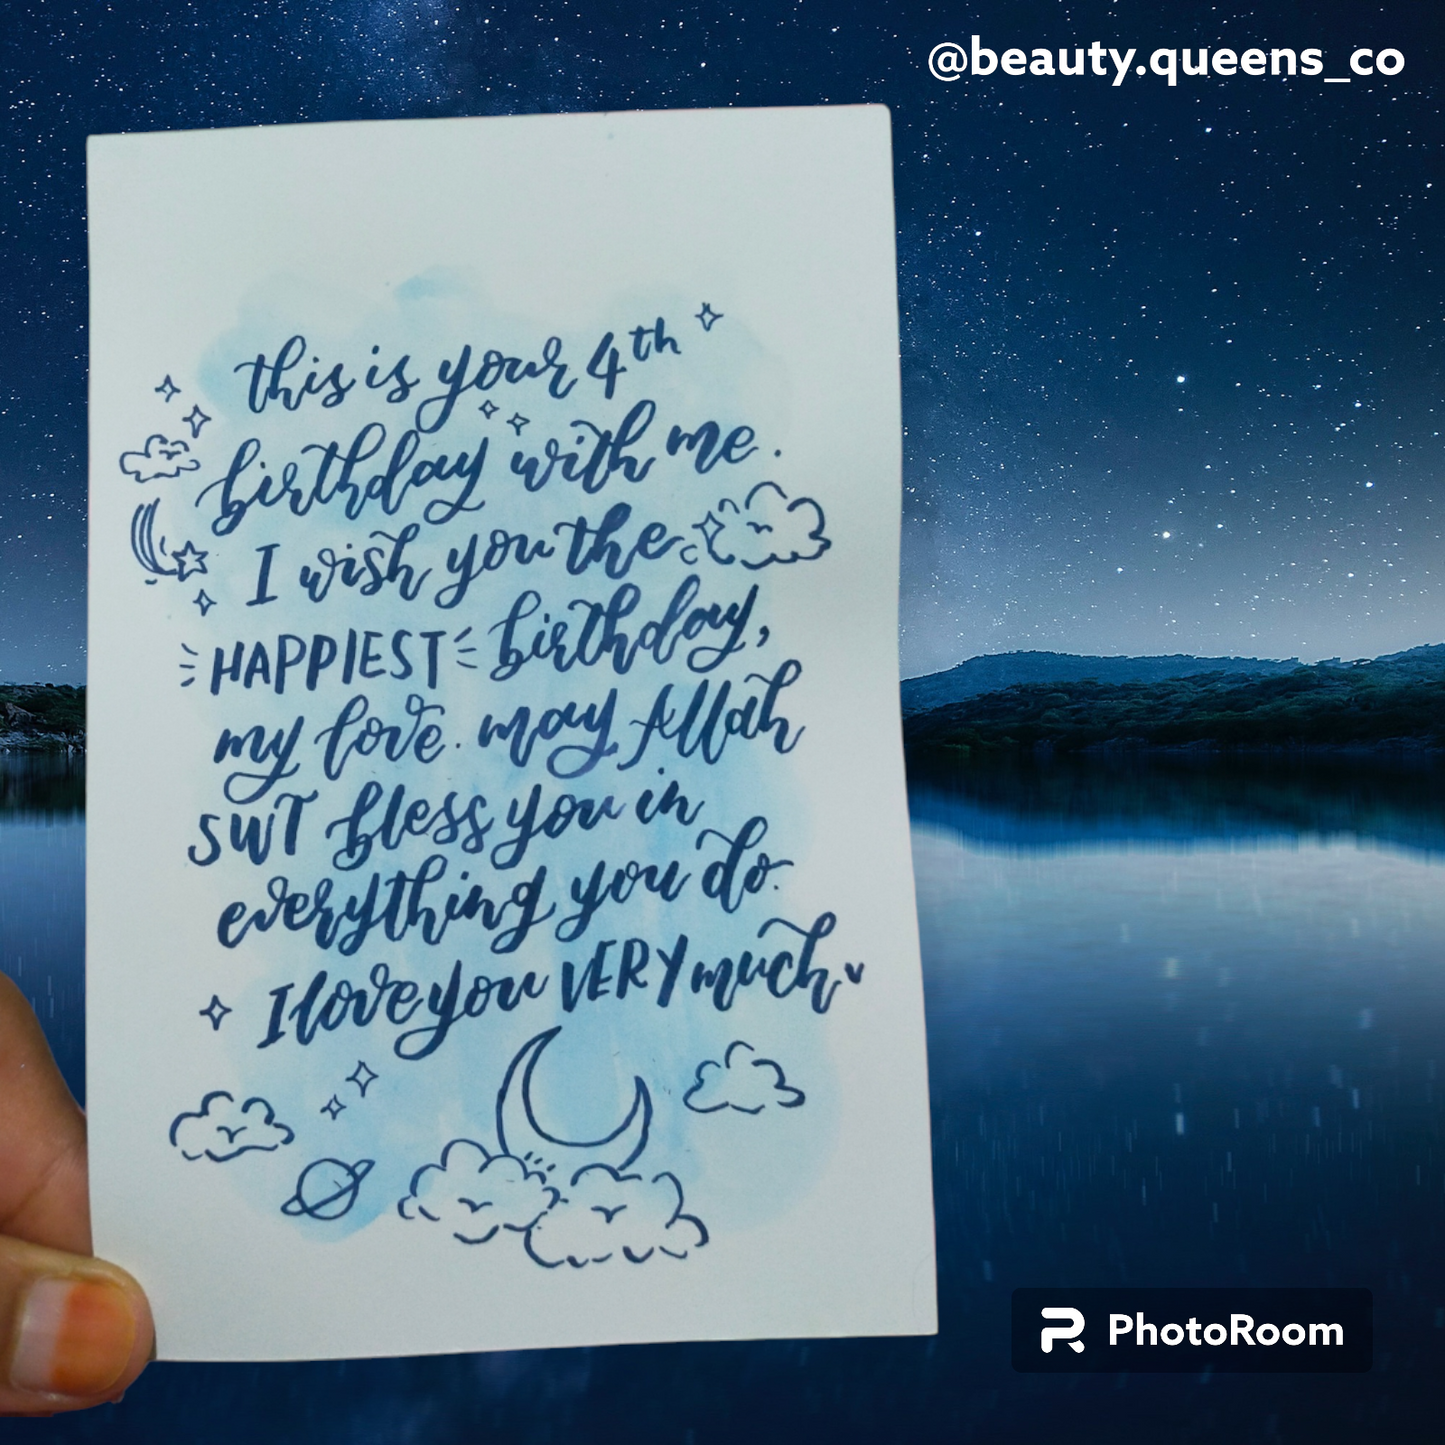 @beauty.queens_co
this is your 4th
birthday with me.
I wish you the
HAPPIEST birthday,
my love. may Allah
SWT bless you in
everything you do.
I love you VERY much
PhotoRoom